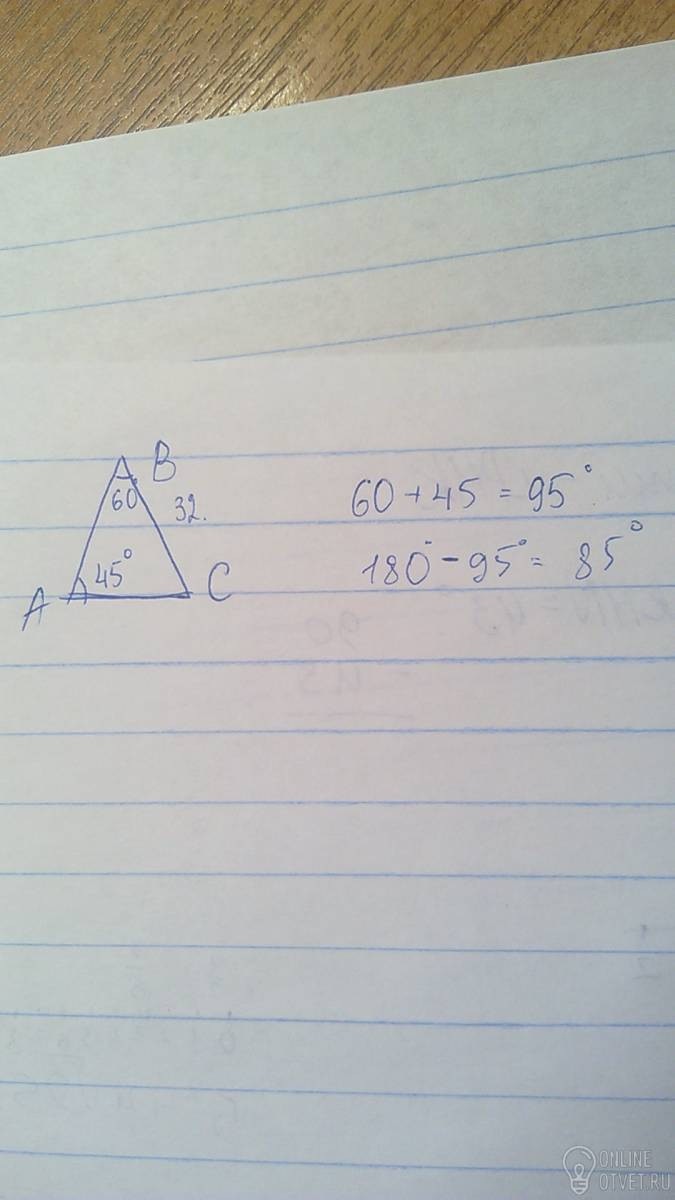 B
60
32.
45°
A
C
60 + 45 = 95°
180° - 95° = 85°
ONLINE
OTVET.RU